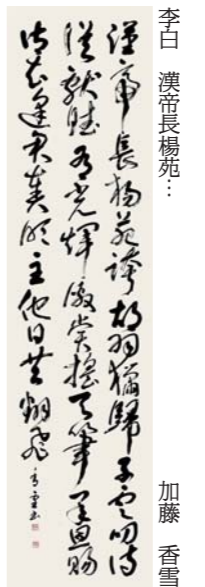 李白 漢帝長楊苑…
加藤 香雪
漢帝長楊苑誇胡羽獵歸子雲叨侍
從獻賦有光輝激賞搖天筆承恩賜
御衣逢君奏明主他日共翻飛 香雪書